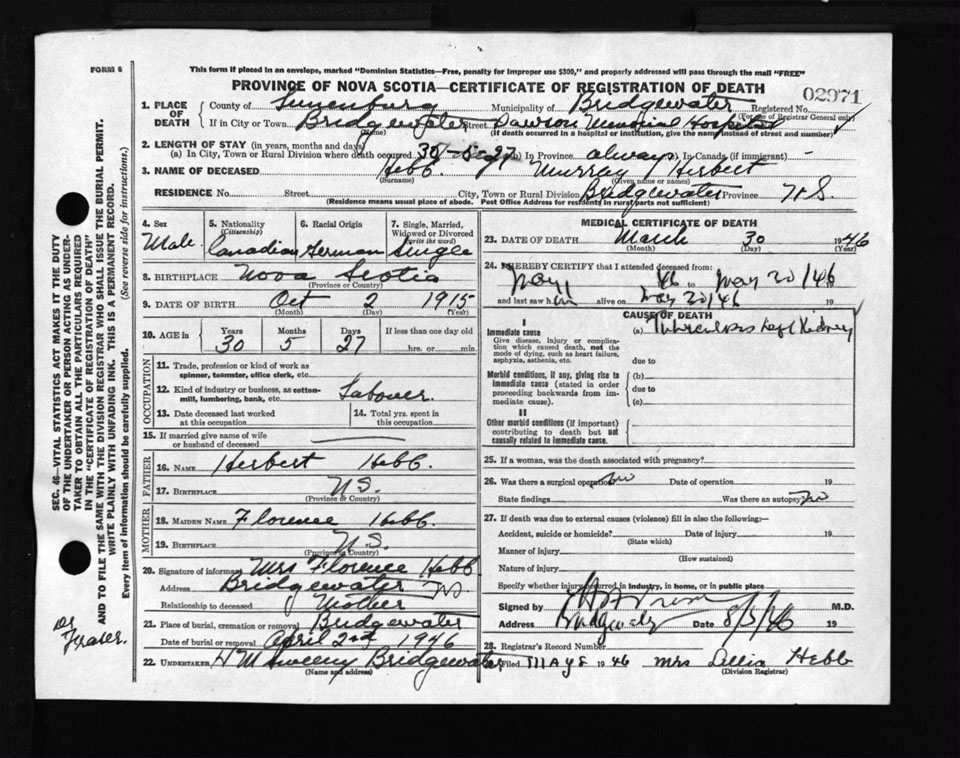 FORM 6
This form if placed in an envelope, marked "Dominion Statistics—Free, penalty for improper use $300," and properly addressed will pass through the mail "FREE"
PROVINCE OF NOVA SCOTIA—CERTIFICATE OF REGISTRATION OF DEATH
02971
1. PLACE OF DEATH County of Lunenburg Municipality of Bridgewater Registered No.
(For use of Registrar General only)
If in City or Town Bridgewater Street Dawson Memorial Hospital
(Name) (If death occurred in a hospital or institution, give the name instead of street and number)
2. LENGTH OF STAY (in years, months and days)
(a) In City, Town or Rural Division where death occurred 30-5-27 (b) In Province always (c) In Canada (if immigrant) -
3. NAME OF DECEASED Hebb Murray Herbert
(Surname) (Given name or names)
RESIDENCE No. Street City, Town or Rural Division Bridgewater Province N.S.
(Residence means usual place of abode. Post Office Address for residents in rural parts not sufficient)
4. Sex
Male
5. Nationality
(Citizenship)
Canadian
6. Racial Origin
German
7. Single, Married,
Widowed or Divorced
(write the word)
Single
8. BIRTHPLACE Nova Scotia
(Province or Country)
9. DATE OF BIRTH Oct 2 1915
(Month) (Day) (Year)
10. AGE in Years Months Days If less than one day old
30 5 27 hrs. or min.
OCCUPATION
11. Trade, profession or kind of work as
spinner, teamster, office clerk, etc.
12. Kind of industry or business, as cotton-
mill, lumbering, bank, etc. Labourer.
13. Date deceased last worked
at this occupation
14. Total yrs. spent in
this occupation
15. If married give name of wife
or husband of deceased
FATHER
16. NAME Herbert Hebb.
17. BIRTHPLACE N.S.
(Province or Country)
MOTHER
18. MAIDEN NAME Florence Hebb.
19. BIRTHPLACE N.S.
(Province or Country)
20. Signature of informant Mrs Florence Hebb
Address Bridgewater NS
Relationship to deceased Mother
21. Place of burial, cremation or removal Bridgewater
Date of burial or removal April 2nd 1946
22. UNDERTAKER Bridgewater
(Name and address)
MEDICAL CERTIFICATE OF DEATH
23. DATE OF DEATH March 30 1946
(Month) (Day) (Year)
24. I HEREBY CERTIFY that I attended deceased from:
46 to 20/46
and last saw him alive on 20/46 19
CAUSE OF DEATH
I
Immediate cause
Give disease, injury or complica-
tion which caused death, not the
mode of dying, such as heart failure,
asphyxia, asthenia, etc.
(a) Tuberculosis Left Kidney
due to
Morbid conditions, if any, giving rise to
immediate cause (stated in order
proceeding backwards from im-
mediate cause).
(b)
due to
(c)
II
Other morbid conditions (if important)
contributing to death but not
causally related to immediate cause.
25. If a woman, was the death associated with pregnancy?
26. Was there a surgical operation no Date of operation 19
State findings Was there an autopsy? no
27. If death was due to external causes (violence) fill in also the following:—
Accident, suicide or homicide? Date of injury 19
(State which)
Manner of injury
(How sustained)
Nature of injury
Specify whether injury occurred in industry, in home, or in public place
Signed by M.D.
Address Bridgewater Date 8/5/46 19
28. Registrar's Record Number
Filed MAY 8 1946 Mrs Lellia Hebb
(Division Registrar)
SEC. 46—VITAL STATISTICS ACT MAKES IT THE DUTY
OF THE UNDERTAKER OR PERSON ACTING AS UNDER-
TAKER TO OBTAIN ALL THE PARTICULARS REQUIRED
IN THE "CERTIFICATE OF REGISTRATION OF DEATH"
AND TO FILE THE SAME WITH THE DIVISION REGISTRAR WHO SHALL ISSUE THE BURIAL PERMIT.
WRITE PLAINLY WITH UNFADING INK. THIS IS A PERMANENT RECORD.
Every item of information should be carefully supplied. (See reverse side for instructions.)
Dr
Fraser.